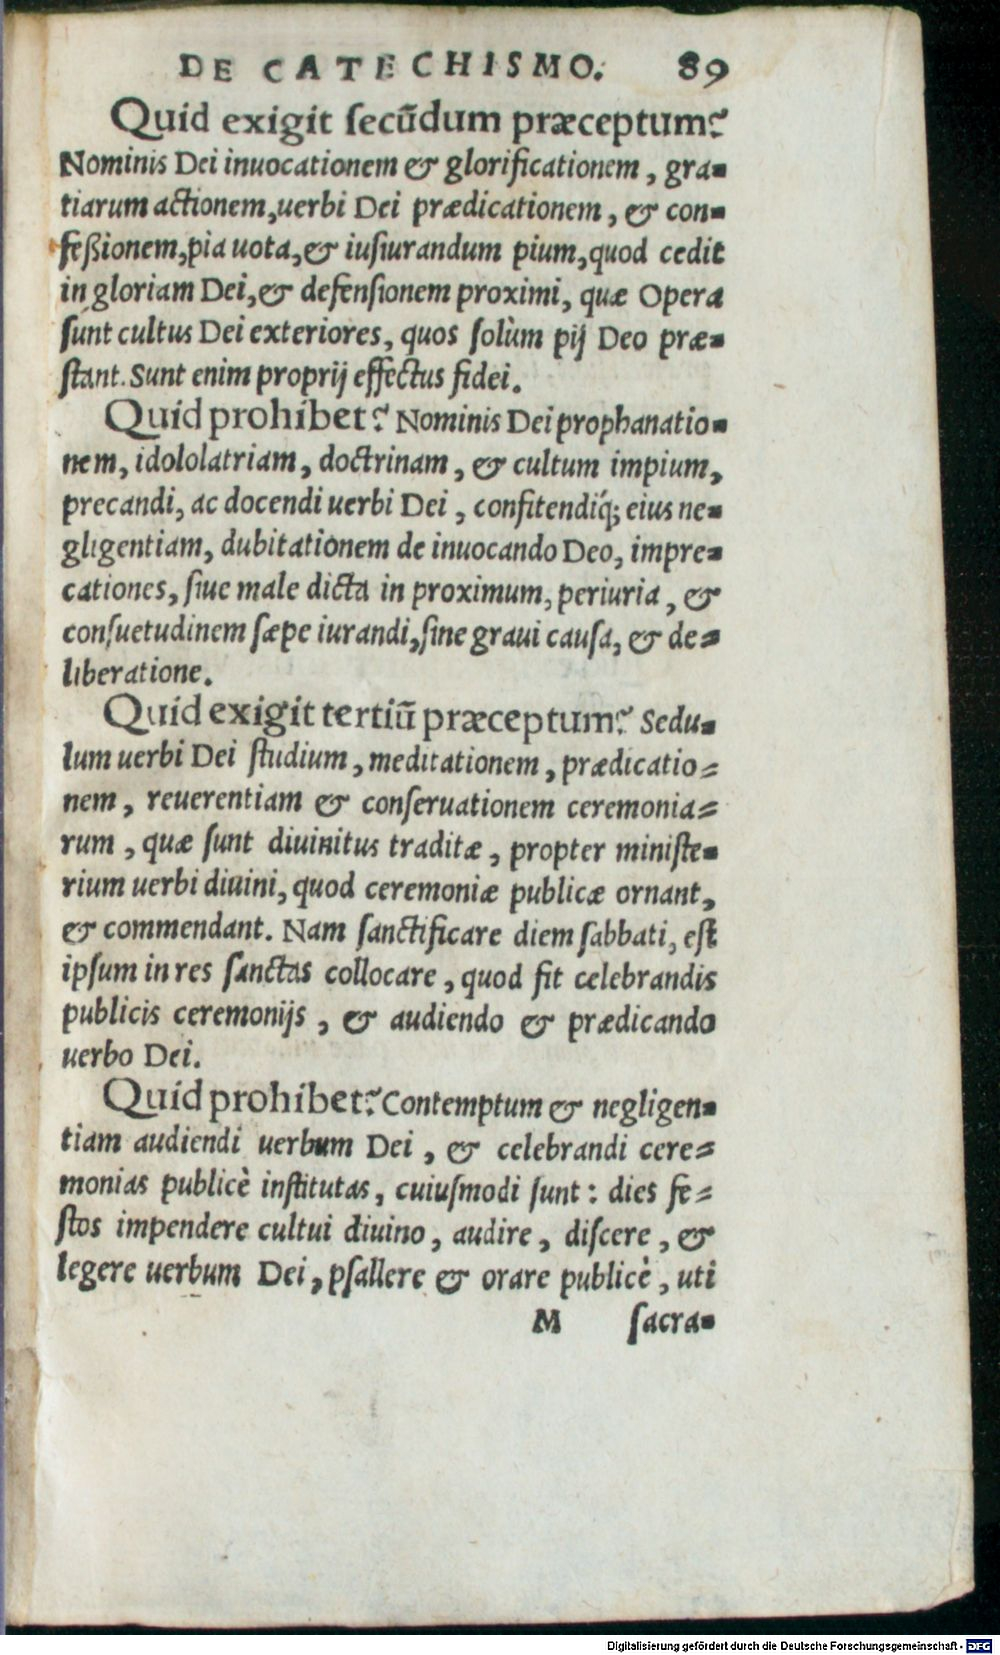 DE CATECHISMO. 89
Quid exigit ſecũdum præceptum?
Nominis Dei inuocationem & glorificationem, gra-
tiarum actionem, uerbi Dei prædicationem, & con-
feßionem, pia uota, & iuſiurandum pium, quod cedit
in gloriam Dei, & defenſionem proximi, quæ Opera
ſunt cultus Dei exteriores, quos ſolùm pij Deo præ-
ſtant. Sunt enim proprij effectus fidei.
Quid prohibet? Nominis Dei prophanatio-
nem, idololatriam, doctrinam, & cultum impium,
precandi, ac docendi uerbi Dei, confitendiq́; eius ne-
gligentiam, dubitationem de inuocando Deo, impre-
cationes, ſiue male dicta in proximum, periuria, &
conſuetudinem ſæpe iurandi, ſine graui cauſa, & de-
liberatione.
Quid exigit tertiũ præceptum? Sedu-
lum uerbi Dei ſtudium, meditationem, prædicatio-
nem, reuerentiam & conſeruationem ceremonia-
rum, quæ ſunt diuinitus traditæ, propter miniſte-
rium uerbi diuini, quod ceremoniæ publicæ ornant,
& commendant. Nam ſanctificare diem ſabbati, eſt
ipſum in res ſanctas collocare, quod fit celebrandis
publicis ceremonijs, & audiendo & prædicando
uerbo Dei.
Quid prohibet? Contemptum & negligen-
tiam audiendi uerbum Dei, & celebrandi cere-
monias publicè inſtitutas, cuiuſmodi ſunt: dies fe-
ſtos impendere cultui diuino, audire, diſcere, &
legere uerbum Dei, pſallere & orare publicè, uti
M ſacra-
Digitalisierung gefördert durch die Deutsche Forschungsgemeinschaft - DFG